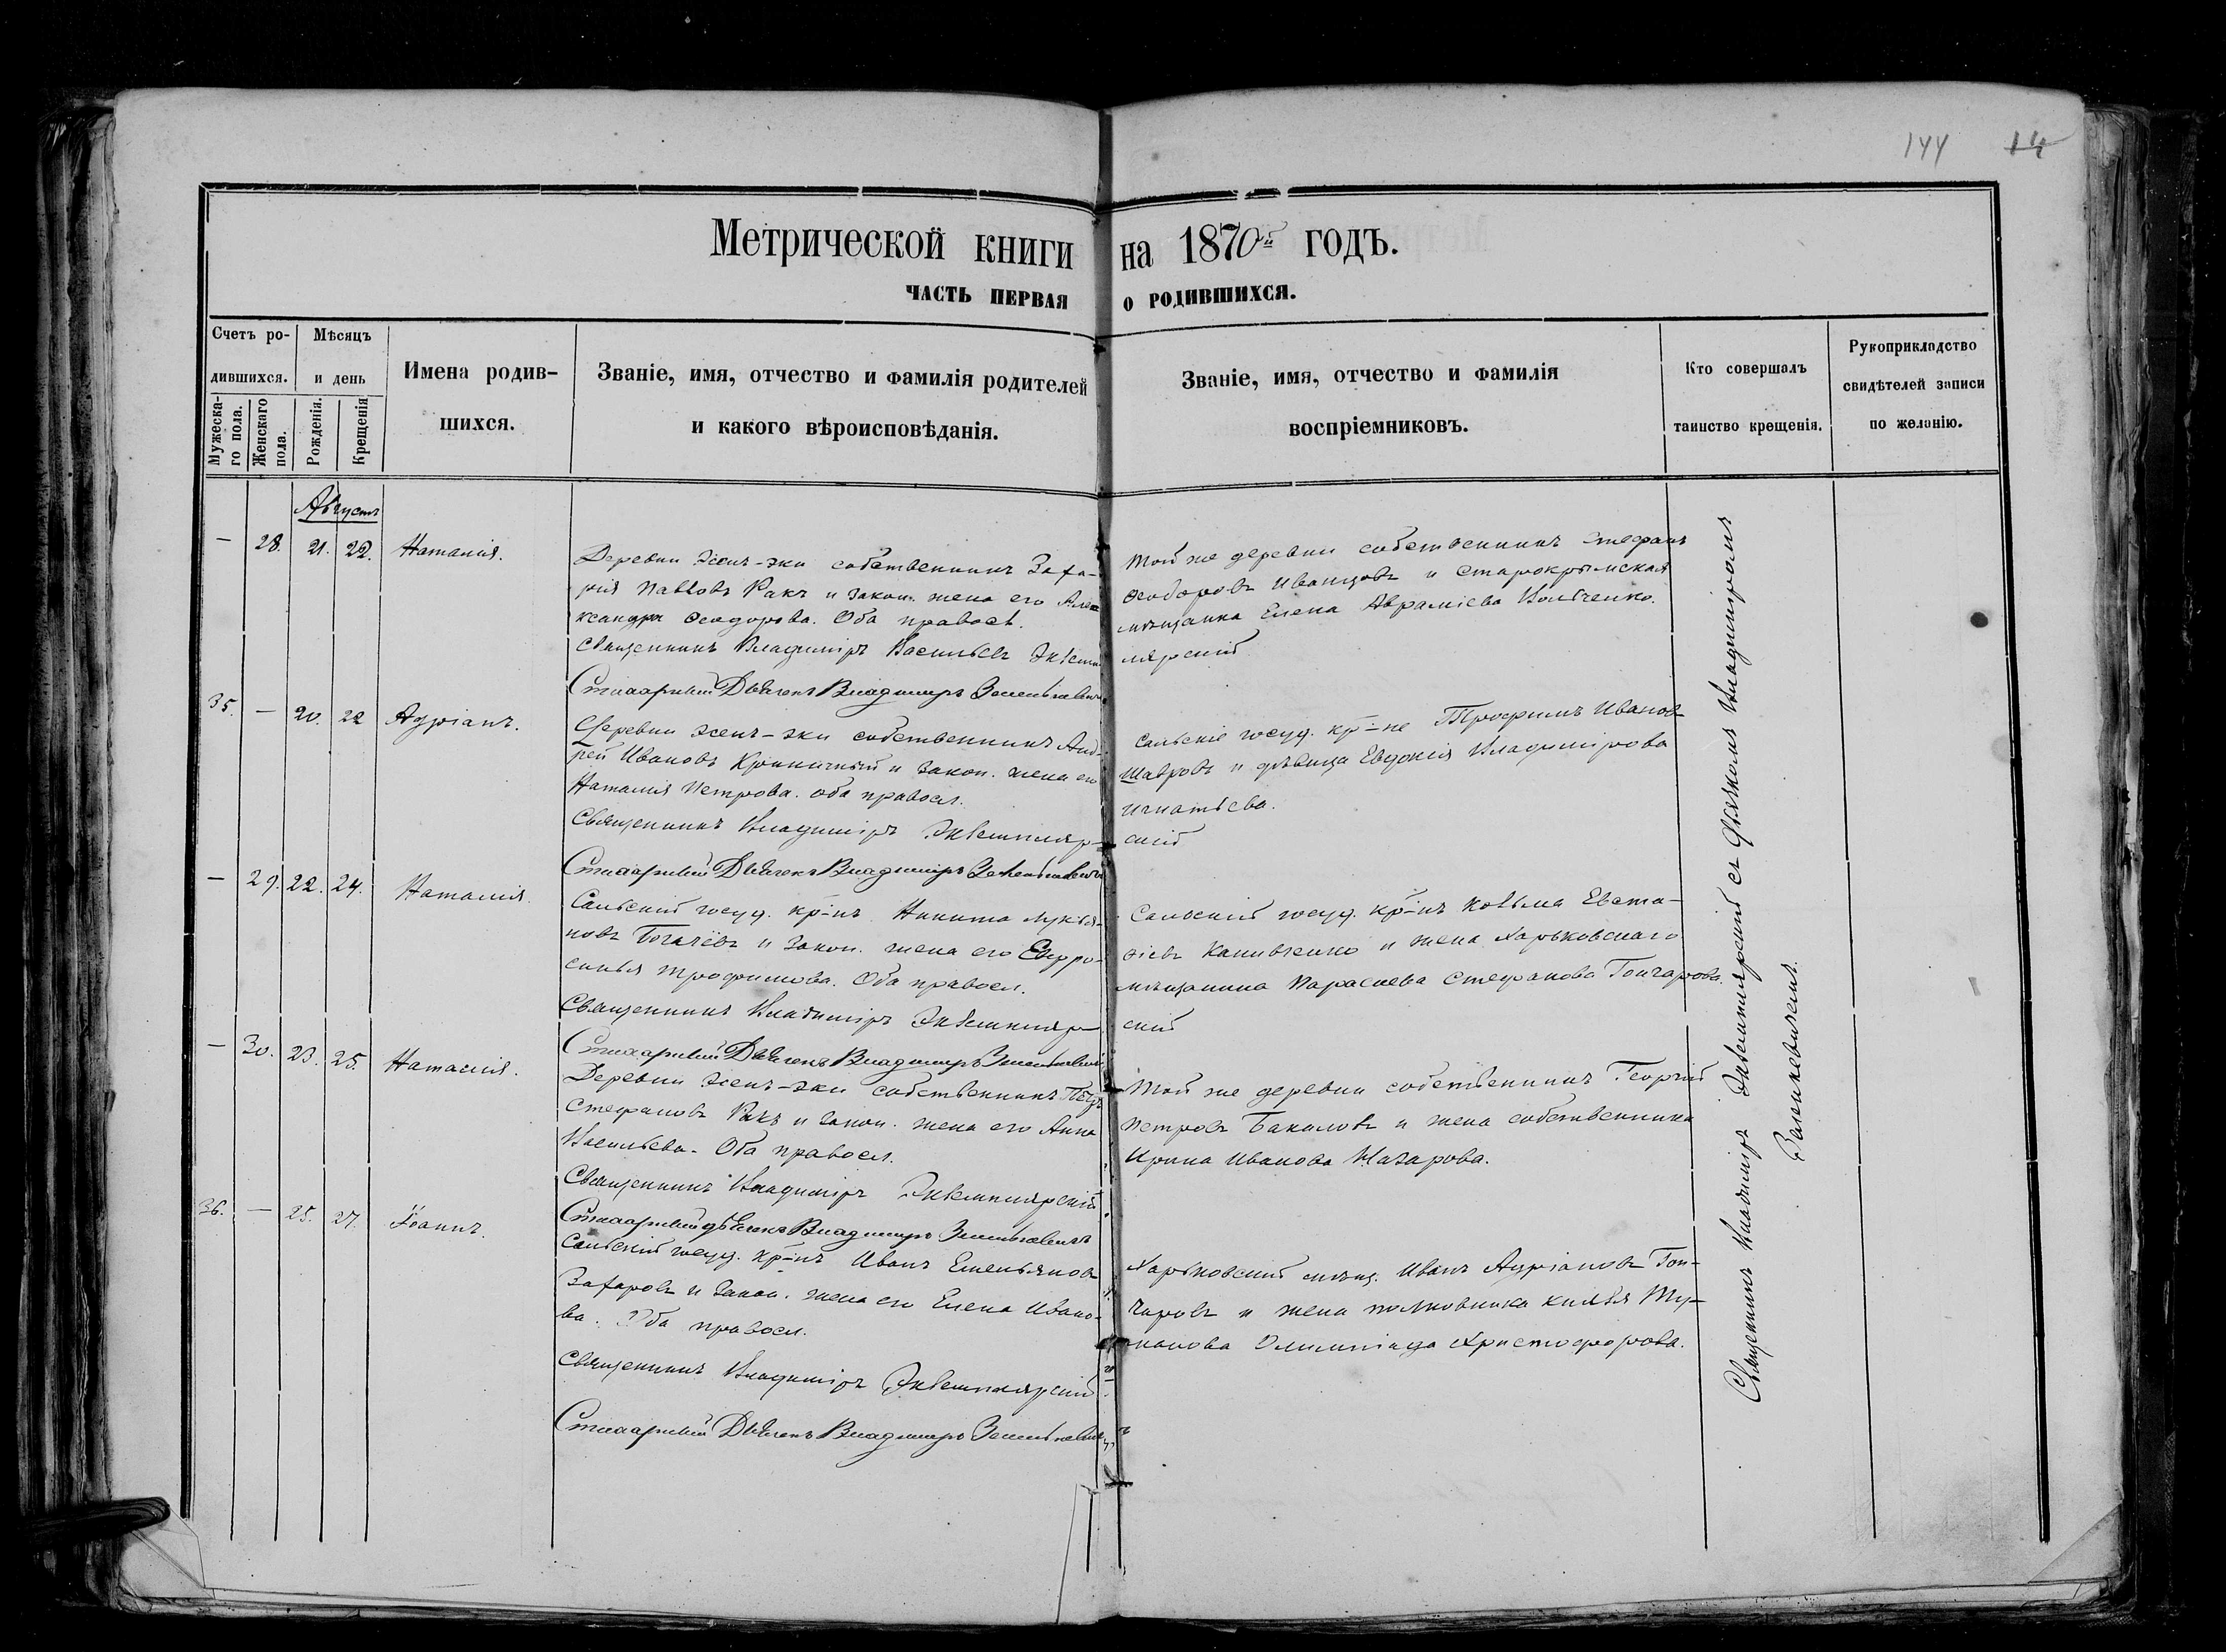 144 14
Метрической книги на 1870й годъ.
ЧАСТЬ ПЕРВАЯ О РОДИВШИХСЯ.
Счетъ ро-
дившихся.
Мужеска-
го пола.
Женскаго
пола.
Мѣсяцъ
и день
Рожденія.
Крещенія
Имена родив-
шихся.
Званіе, имя, отчество и фамилія родителей
и какого вѣроисповѣданія.
Званіе, имя, отчество и фамилія
воспріемниковъ.
Кто совершалъ
таинство крещенія.
Рукоприкладство
свидѣтелей записи
по желанію.
Августъ
— 28. 21. 22. Наталія.
Деревни Эсенъ-эки собственникъ Заха-
рія Павловъ Ракъ и закон. жена его Алек
ксандра Ѳеодорова. Оба правосл.
Священникъ Владиміръ Васильевъ Экземп
Стихарный Дьячекъ Владимиръ
Той же деревни собственникъ Стефанъ
Ѳеодоровъ Иванцовъ и старокрымская
мѣщанка Елена Авраміева
лярскій
35. — 20. 22 Адріанъ.
Деревни Эсенъ-эки собственникъ Анд-
рей Ивановъ Криничный и закон. жена его
Наталія Петрова. Оба правосл.
Священникъ Владиміръ Экземпляр-
Стихарный Дьячекъ Владимиръ
Сальскіе госуд. кр-не Трофимъ Иванов
Шавровъ и дѣвица Евдокія Владимірова
Игнатьева.
скій
— 29. 22. 24. Наталія.
Сальскій госуд. кр-нъ Никита Лукья-
новъ Богачёвъ и закон. жена его Евфро-
синья Трофимова. Оба правосл.
Священникъ Владиміръ Экземпляр-
Стихарный Дьячекъ Владимиръ
Сальскій госуд. кр-нъ Козьма Евста-
фіевъ и жена Харьковскаго
мѣщанина Параскева Стефанова Гончарова.
скій
— 30. 23. 25. Наталія.
Деревни Эсенъ-эки собственникъ Петръ
Стефановъ Ракъ и закон. жена его Анна
Васильева. Оба правосл.
Священникъ Владиміръ Экземплярскій
Стихарный дьячекъ Владимиръ
Той же деревни собственникъ Георгій
Петровъ Бакаловъ и жена собственника
Ирина Иванова Назарова.
36. — 25. 27. Іоаннъ.
Сальскій госуд. кр-нъ Иванъ Емельяновъ
Захаровъ и закон. жена его Елена Ивано-
ва. Оба правосл.
Священникъ Владиміръ Экземплярскій
Стихарный Дьячекъ Владимиръ
Харьковскій мѣщ. Иванъ Адріановъ Гон-
чаровъ и жена полковника князя Ту-
манова Олимпіада Христофорова.
Священникъ Владиміръ Экземплярскій съ дьячкомъ Владиміромъ